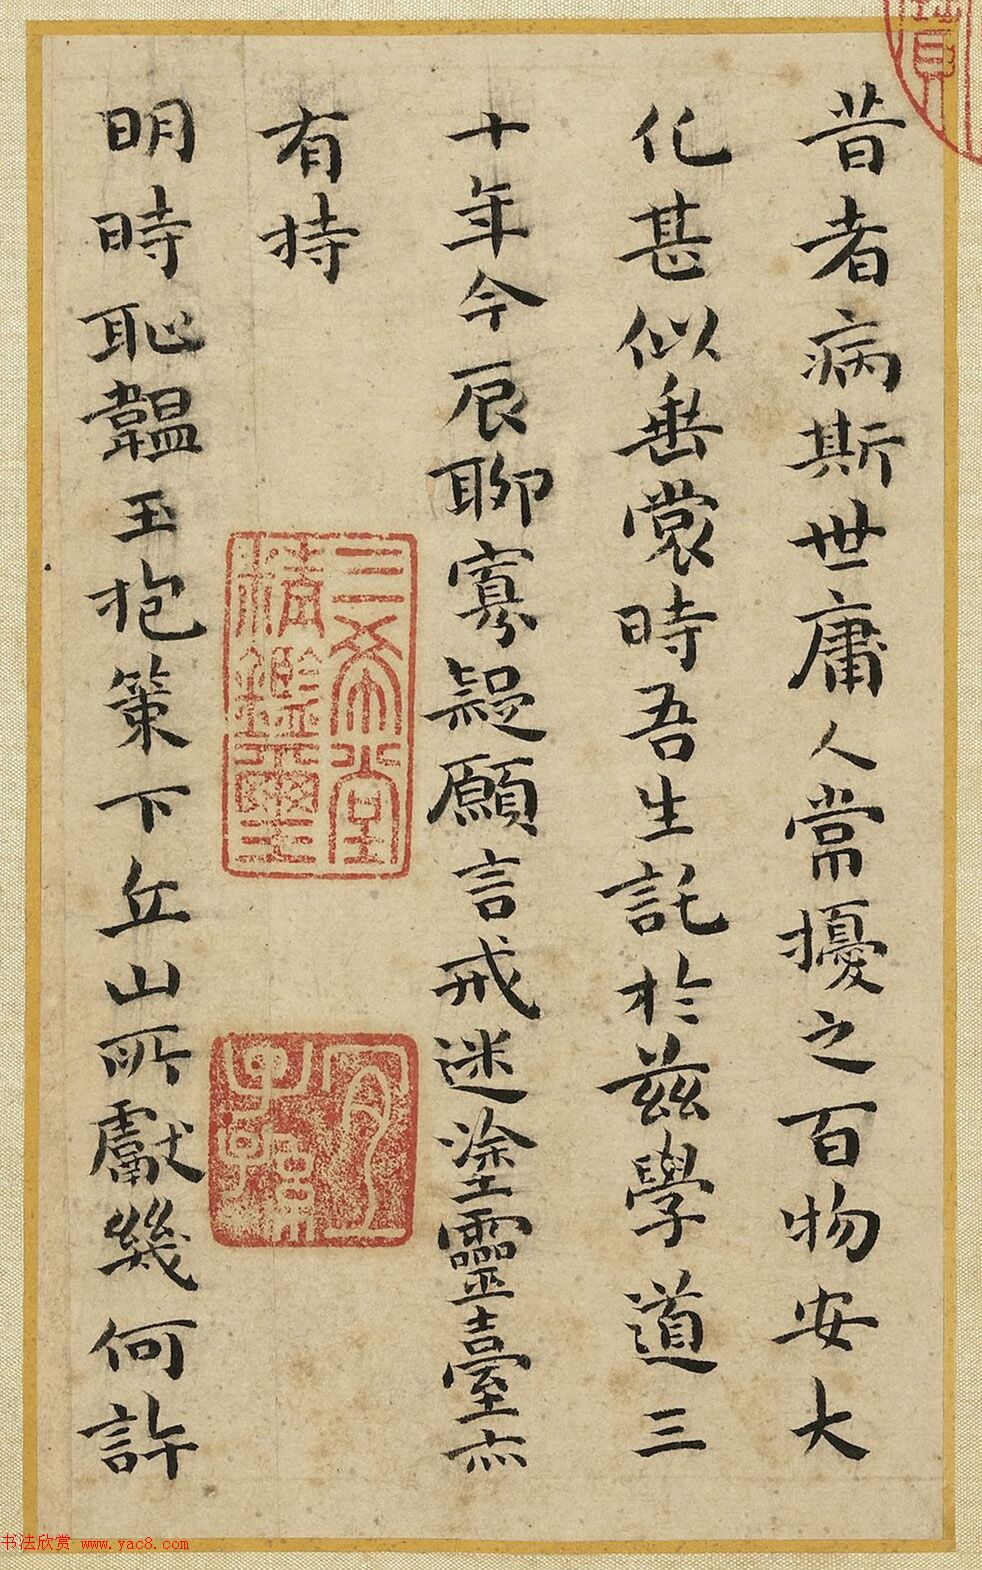 昔者病斯世庸人當擾之百物安大
化甚似垂裳時吾生託於茲學道三
十年今辰聊寡疑願言戒迷塗靈臺亦
有持
明時恥韞玉抱策下丘山所獻幾何許
三希堂
精鑑璽
书法欣赏 www.yac8.com